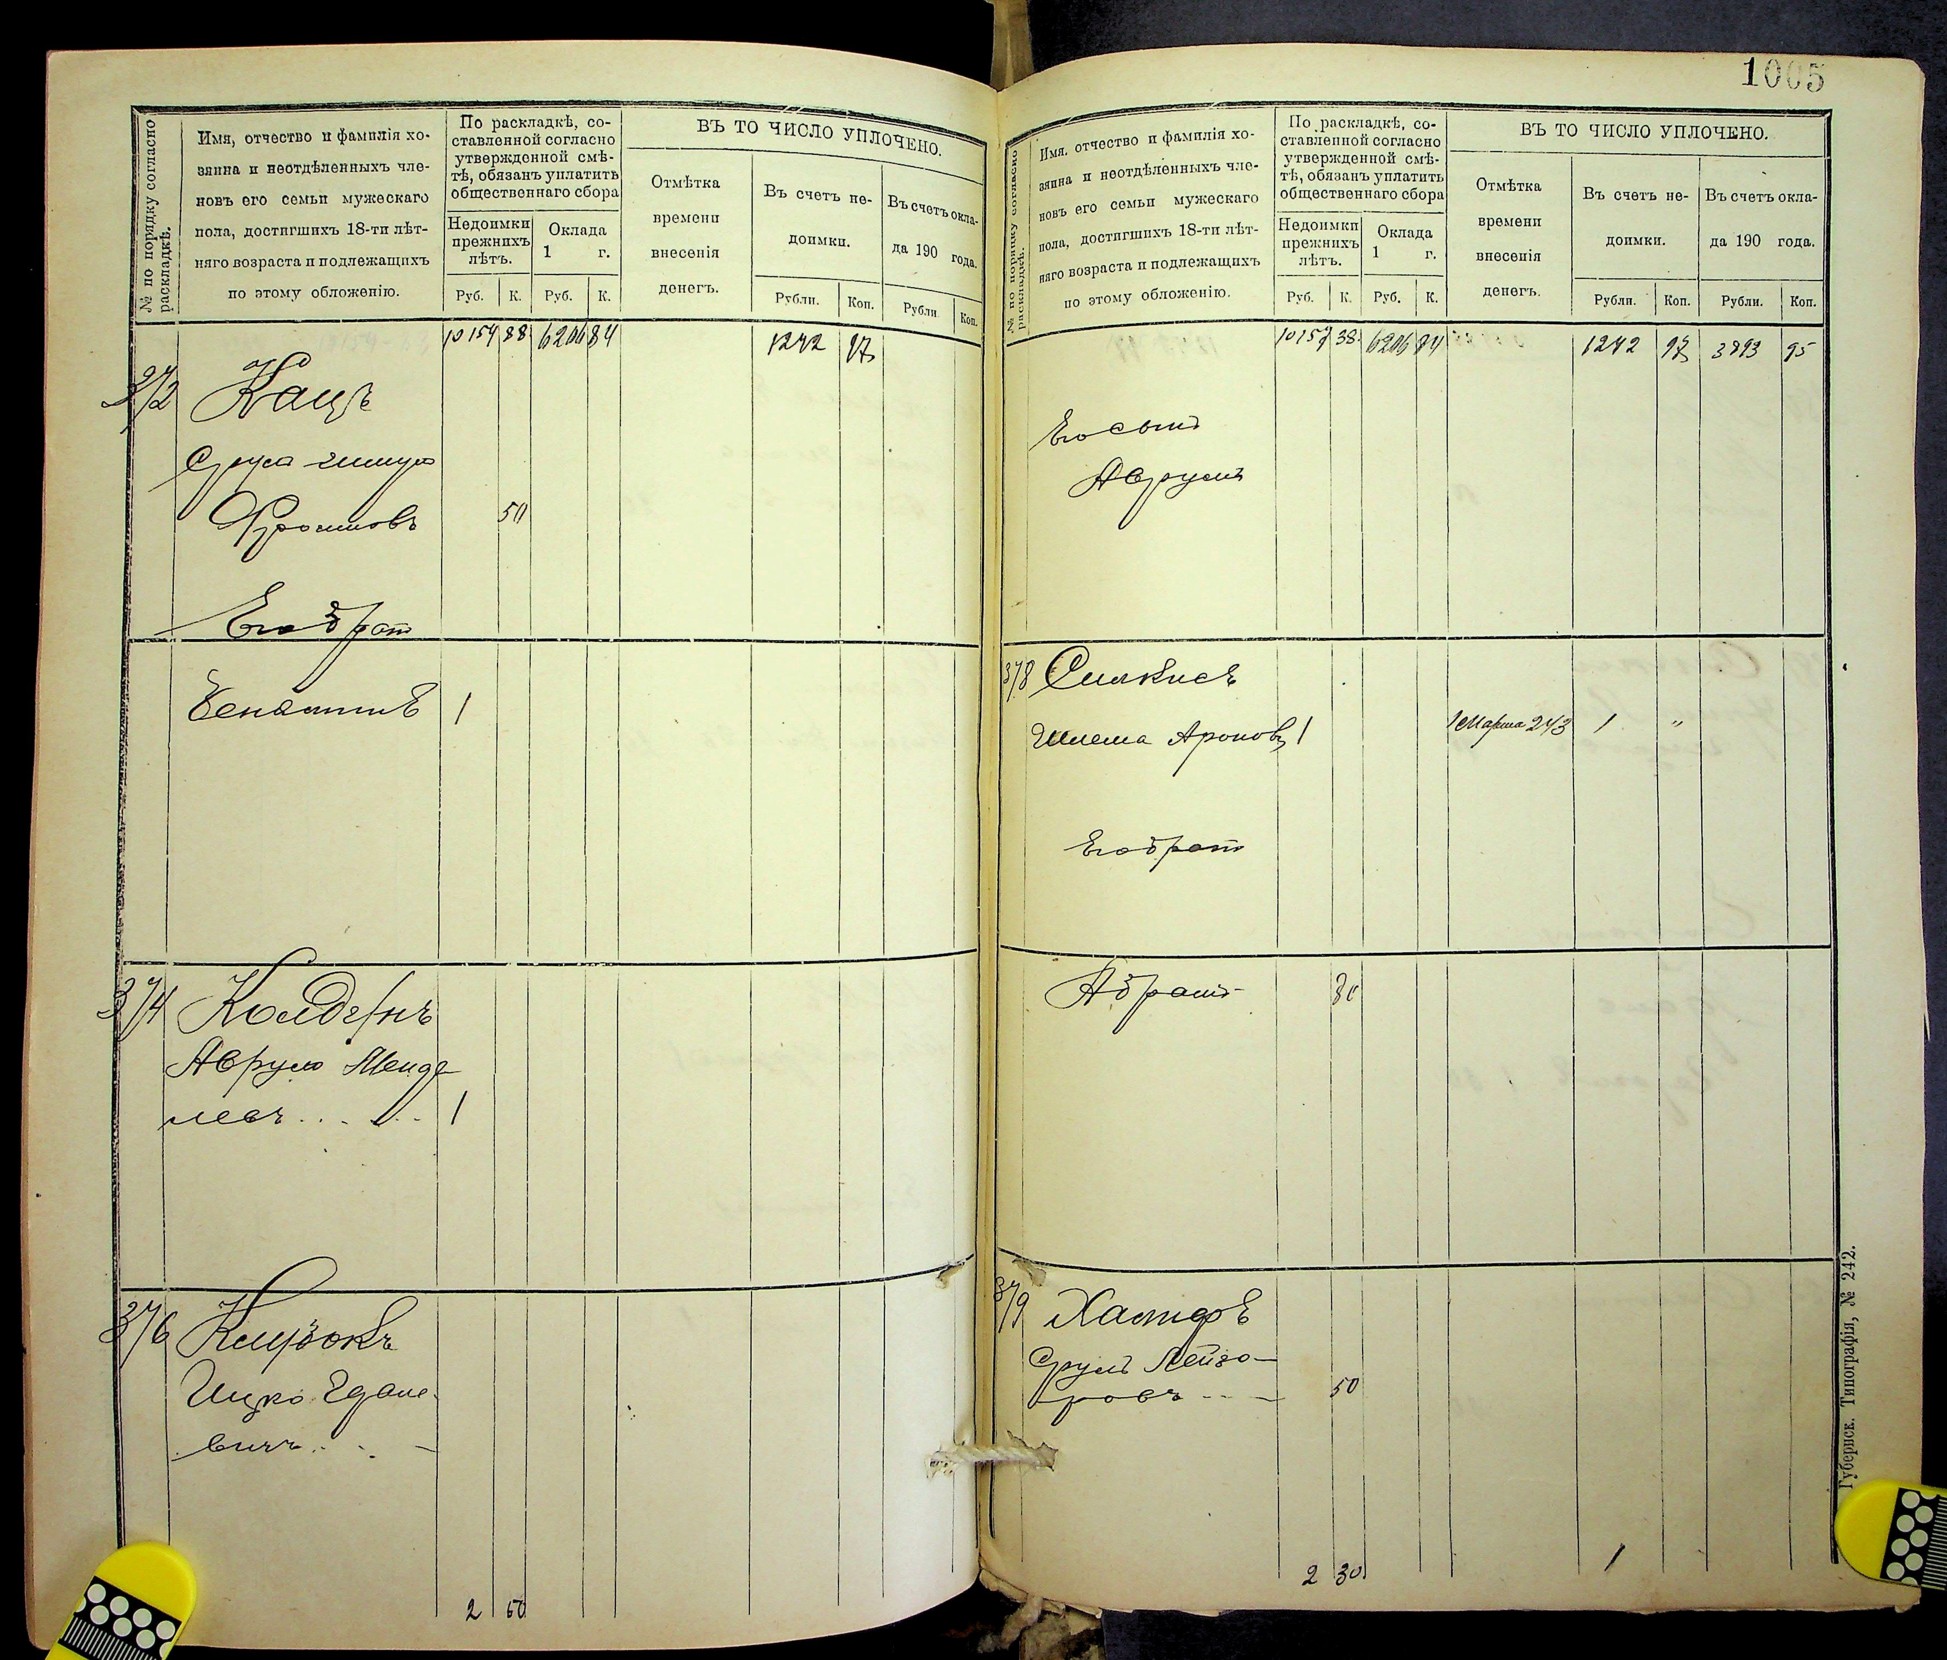 1005
№ по порядку согласно раскладкѣ.
Имя, отчество и фамилія хо-
зяина и неотдѣленныхъ чле-
новъ его семьи мужескаго
пола, достигшихъ 18-ти лѣт-
няго возраста и подлежащихъ
по этому обложенію.
По раскладкѣ, со-
ставленной согласно
утвержденной смѣ-
тѣ, обязанъ уплатить
общественнаго сбора
Недоимки
прежнихъ
лѣтъ.
Оклада
1 г.
Руб. К. Руб. К.
ВЪ ТО ЧИСЛО УПЛОЧЕНО.
Отмѣтка
времени
внесенія
денегъ.
Въ счетъ не-
доимки.
Рубли. Коп.
Въ счетъ окла-
да 190 года.
Рубли Коп.
10154 88 6206 84 1242 97
372 Кацъ
Фроимовъ 50
Его братъ
Беньяминъ 1
374
Аврумъ Менде
левъ . . . . 1
376
Ицко
вичъ . . . -
2 50
№ по порядку согласно раскладкѣ.
Имя, отчество и фамилія хо-
зяина и неотдѣленныхъ чле-
новъ его семьи мужескаго
пола, достигшихъ 18-ти лѣт-
няго возраста и подлежащихъ
по этому обложенію.
По раскладкѣ, со-
ставленной согласно
утвержденной смѣ-
тѣ, обязанъ уплатить
общественнаго сбора
Недоимки
прежнихъ
лѣтъ.
Оклада
1 г.
Руб. К. Руб. К.
ВЪ ТО ЧИСЛО УПЛОЧЕНО.
Отмѣтка
времени
внесенія
денегъ.
Въ счетъ не-
доимки.
Рубли. Коп.
Въ счетъ окла-
да 190 года.
Рубли. Коп.
10157 38 6206 84 1242 97 3893 95
Его сынъ
Аврумъ
378 Силкисъ
Шлема Ароновъ 1 1 Марта 243 1 "
Его братъ
Абрамъ 30
379
Срулъ Лейзо-
ровъ - - - 50
2 30 1
Губернск. Типографія, № 242.